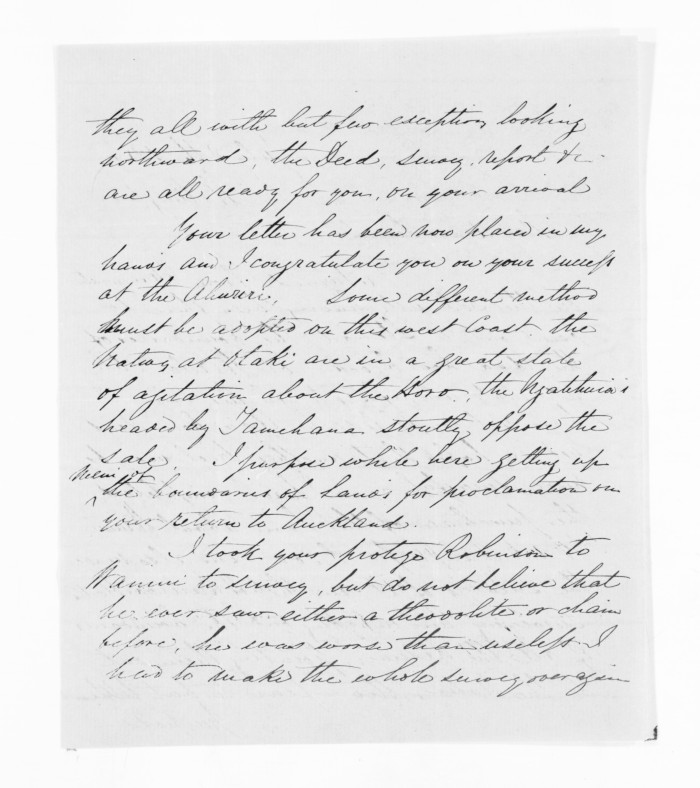 they all with but few exception, looking
northward, the Deed, survey, report &c -
are all ready for you, on your arrival
Your letter has been now placed in my
hands and I congratulate you on your success
at the Ahuriri. Some different method
must be adopted on this west Coast. the
Natives at Otaki are in a great state
of agitation about the Horo, the Ngatihuia's
headed by Tamehana stoutly oppose the
sale. I purpose while here getting up
the boundaries of Lands for proclamation on
your return to Auckland.
I took your protege Robinson to
Wanui to survey, but do not believe that
he ever saw either a theodolite or chain
before, he was worse than useless I
had to make the whole survey over again